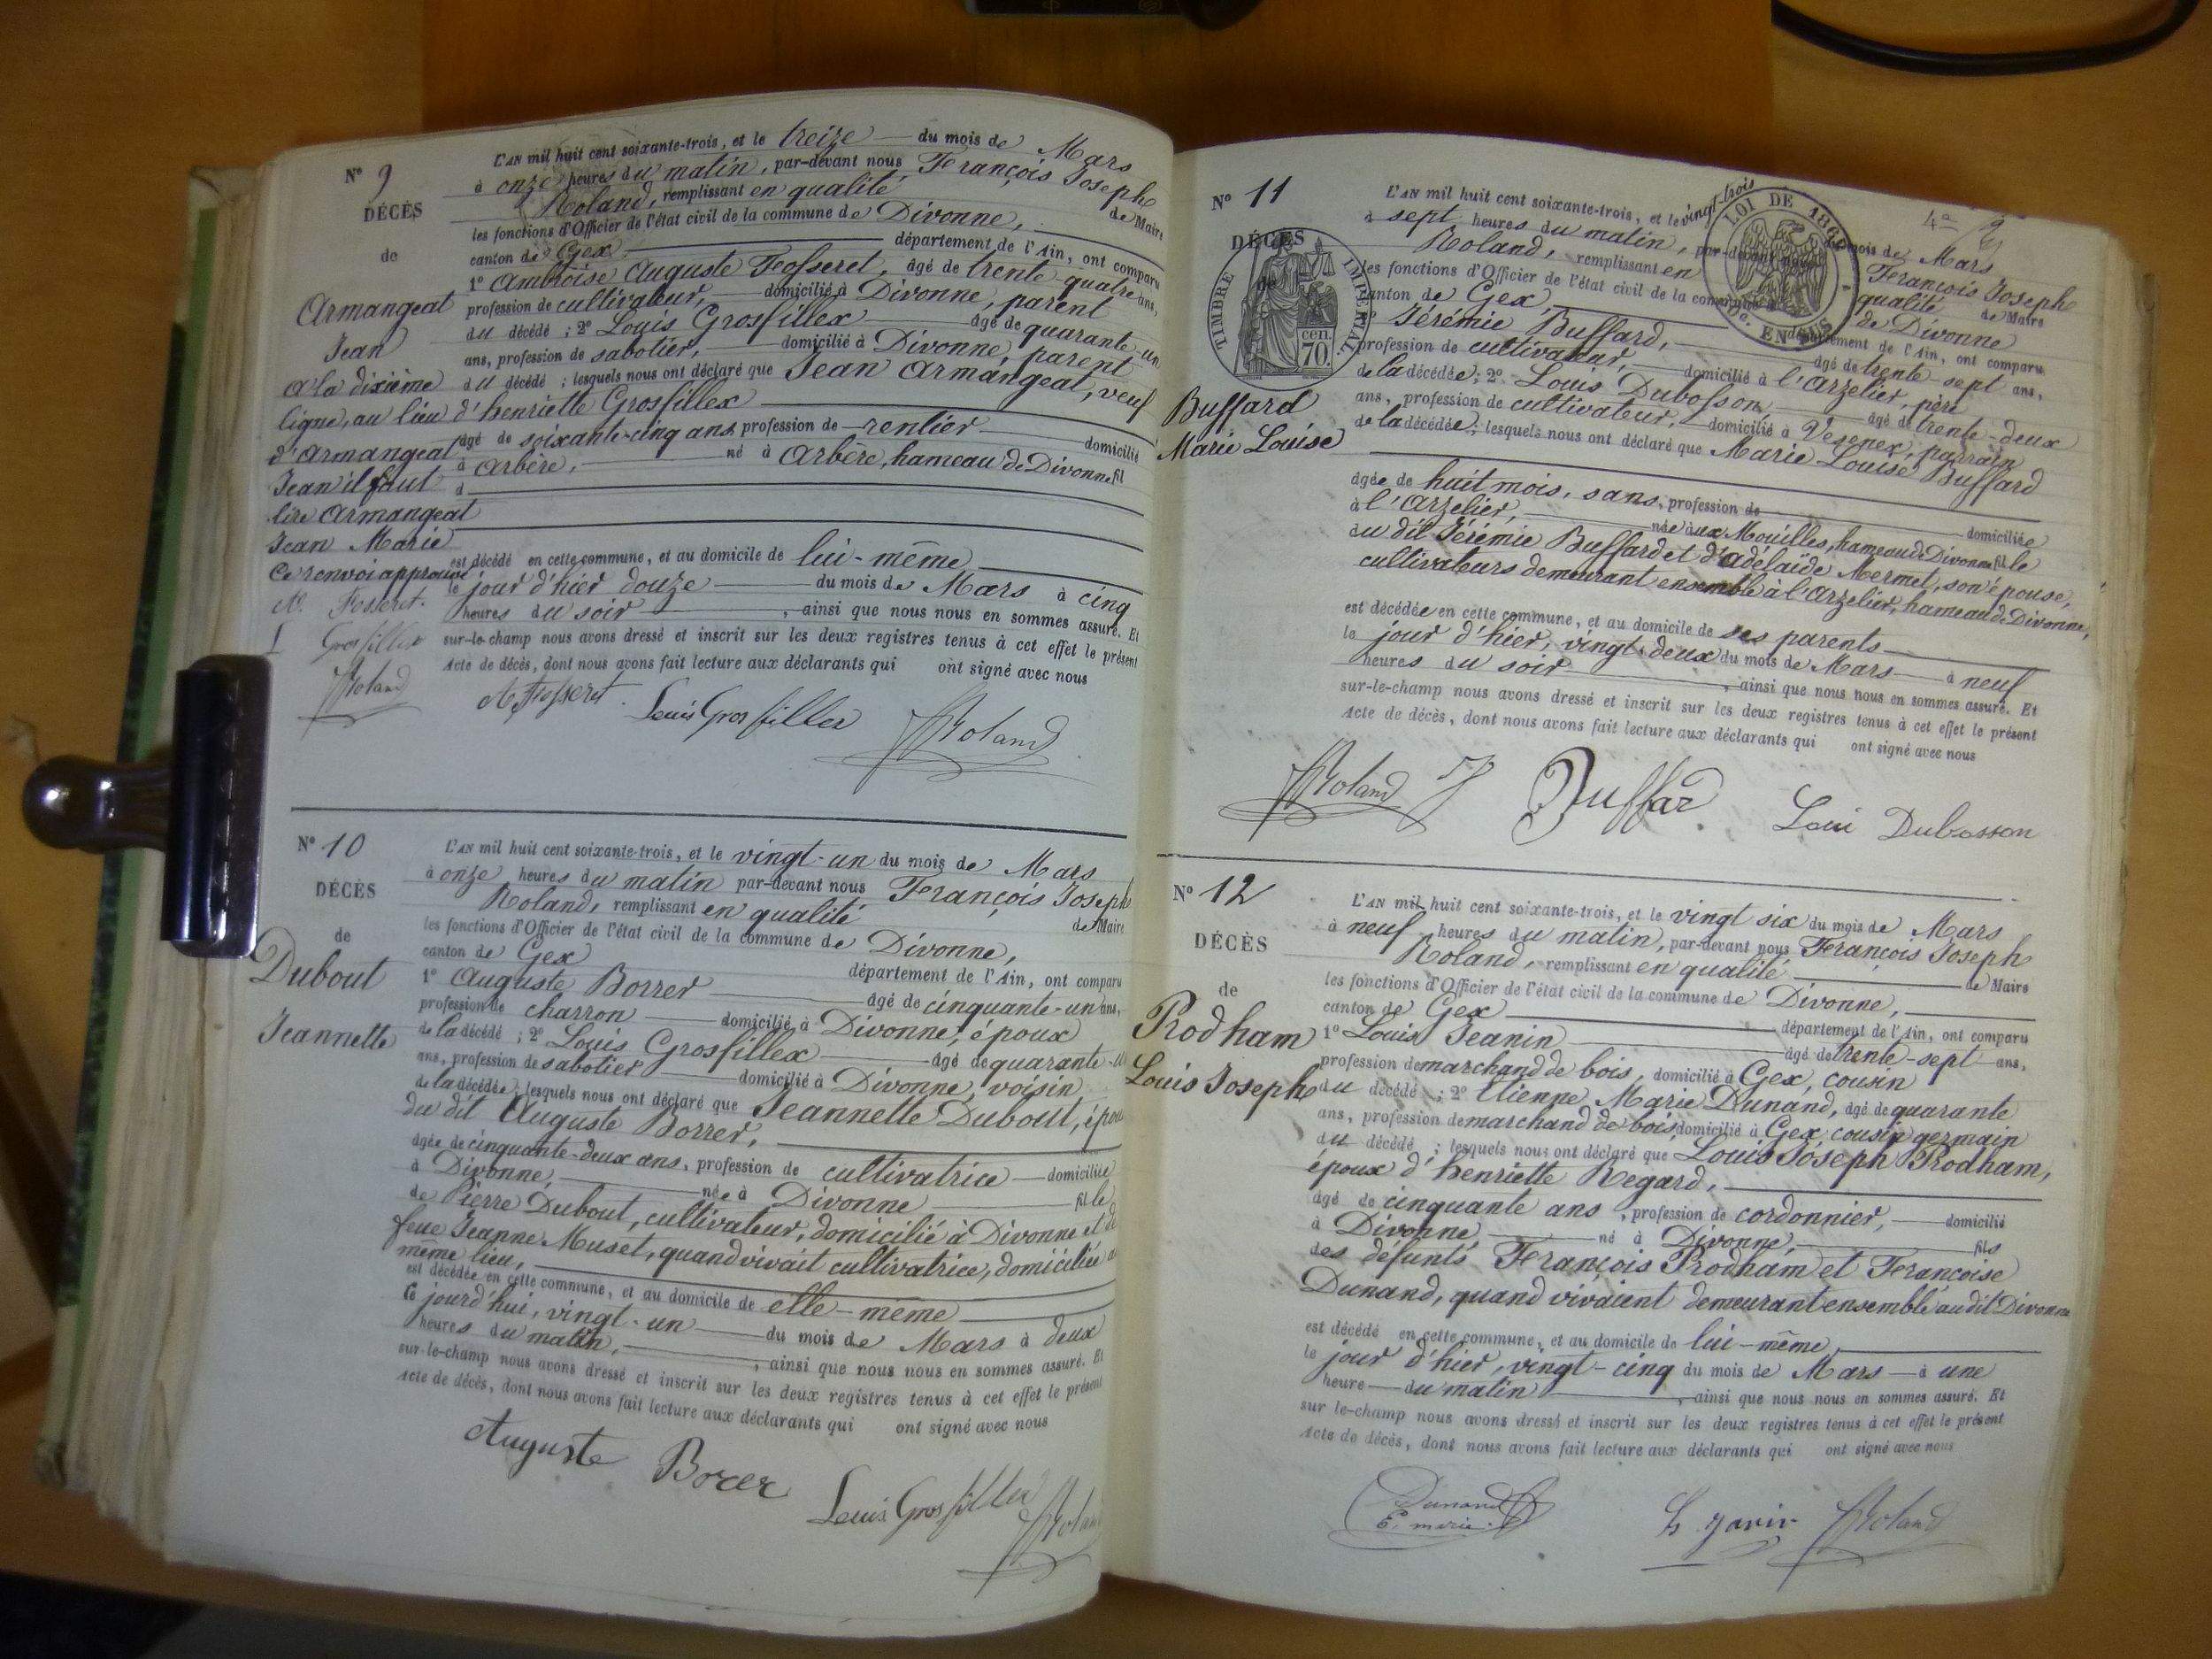 N° 9
DÉCÈS
de
Armangeat
Jean
a la dixième
ligne, au lieu
d'Armangeat
Jean il faut
lire Armangeat
Jean Marie
Ce renvoi approuvé
Grosfillex
FRoland
L'AN mil huit cent soixante-trois, et le treize du mois de Mars
à onze heures du matin, par-devant nous François Joseph
Roland, remplissant en qualité de Maire
les fonctions d'Officier de l'état civil de la commune de Divonne,
canton de Gex département de l'Ain, ont comparu
1° Ambroise Auguste Feosseret, âgé de trente-quatre ans,
profession de cultivateur, domicilié à Divonne, parent
du décédé ; 2° Louis Grosfillex âgé de quarante-un
ans, profession de sabotier, domicilié à Divonne, parent
du décédé ; lesquels nous ont déclaré que Jean Armangeat, veuf
d'henriette Grosfillex
âgé de soixante-cinq ans, profession de rentier domicilié
à Arbère, né à Arbère, hameau de Divonne fil
d
est décédé en cette commune, et au domicile de lui-même
le jour d'hier douze du mois de Mars à cinq
heures du soir, ainsi que nous nous en sommes assuré. Et
sur-le-champ nous avons dressé et inscrit sur les deux registres tenus à cet effet le présent
Acte de décès, dont nous avons fait lecture aux déclarants qui ont signé avec nous
Louis Grosfillex FRoland
N° 10
DÉCÈS
de
Dubout
Jeannette
L'AN mil huit cent soixante-trois, et le vingt-un du mois de Mars
à onze heures du matin par-devant nous François Joseph
Roland, remplissant en qualité de Maire
les fonctions d'Officier de l'état civil de la commune de Divonne,
canton de Gex département de l'Ain, ont comparu
1° Auguste Borrer âgé de cinquante-un ans,
profession de charron domicilié à Divonne, époux
de la décédé ; 2° Louis Grosfillex âgé de quarante-un
ans, profession de sabotier domicilié à Divonne, voisin
de la décédée ; lesquels nous ont déclaré que Jeannette Dubout, épou
du dit Auguste Borrer,
âgée de cinquante-deux ans, profession de cultivatrice domiciliée
à Divonne, née à Divonne fille
de Pierre Dubout, cultivateur, domicilié à Divonne et de
feue Jeanne Muset, quand vivait cultivatrice, domiciliée a
même lieu,
est décédée en cette commune, et au domicile de elle-même
ce jourd'hui, vingt-un du mois de Mars à deux
heures du matin, ainsi que nous nous en sommes assuré. Et
sur-le-champ nous avons dressé et inscrit sur les deux registres tenus à cet effet le présent
Acte de décès, dont nous avons fait lecture aux déclarants qui ont signé avec nous
Auguste Borer Louis Grosfillex FRoland
N° 11
DÉCÈS
de
TIMBRE IMPÉRIAL
70 cen.
Buffard
Marie Louise
LOI DE 1862
EN SUS
L'AN mil huit cent soixante-trois, et le vingt-trois du mois de Mars
à sept heures du matin, par-devant nous François Joseph
Roland, remplissant en qualité de Maire
les fonctions d'Officier de l'état civil de la commune de Divonne
canton de Gex, département de l'Ain, ont comparu
1° Jérémie Buffard, âgé de trente-sept ans,
profession de cultivateur, domicilié à l'Arzelier, père
de la décédée ; 2° Louis Dubosson, âgé de trente-deux
ans, profession de cultivateur, domicilié à Vesenex, parrain
de la décédée ; lesquels nous ont déclaré que Marie Louise Buffard
âgée de huit mois, sans, profession de domiciliée
à l'Arzelier, née aux Mouilles, hameau de Divonne fille
du dit Jérémie Buffard et d'Adélaïde Mermet, son épouse,
cultivateurs demeurant ensemble à l'Arzelier, hameau de Divonne,
est décédée en cette commune, et au domicile de ses parents
le jour d'hier, vingt-deux du mois de Mars à neuf
heures du soir, ainsi que nous nous en sommes assuré. Et
sur-le-champ nous avons dressé et inscrit sur les deux registres tenus à cet effet le présent
Acte de décès, dont nous avons fait lecture aux déclarants qui ont signé avec nous
FRoland J Buffar Loui Dubosson
N° 12
DÉCÈS
de
Prodham
Louis Joseph
L'AN mil huit cent soixante-trois, et le vingt six du mois de Mars
à neuf heures du matin, par-devant nous François Joseph
Roland, remplissant en qualité de Maire
les fonctions d'Officier de l'état civil de la commune de Divonne,
canton de Gex département de l'Ain, ont comparu
1° Louis Jeanin âgé de trente-sept ans,
profession de marchand de bois, domicilié à Gex, cousin
du décédé ; 2° Etienne Marie Dunand, âgé de quarante
ans, profession de marchand de bois, domicilié à Gex, cousin germain
du décédé ; lesquels nous ont déclaré que Louis Joseph Prodham,
époux d'henriette Regard,
âgé de cinquante ans, profession de cordonnier, domicilié
à Divonne, né à Divonne, fils
des défunts François Prodham et Françoise
Dunand, quand vivaient demeurant ensemble au dit Divonne
est décédé en cette commune, et au domicile de lui-même,
le jour d'hier, vingt-cinq du mois de Mars à une
heure du matin, ainsi que nous nous en sommes assuré. Et
sur le-champ nous avons dressé et inscrit sur les deux registres tenus à cet effet le présent
Acte de décès, dont nous avons fait lecture aux déclarants qui ont signé avec nous
Dunand
E. marie
FRoland